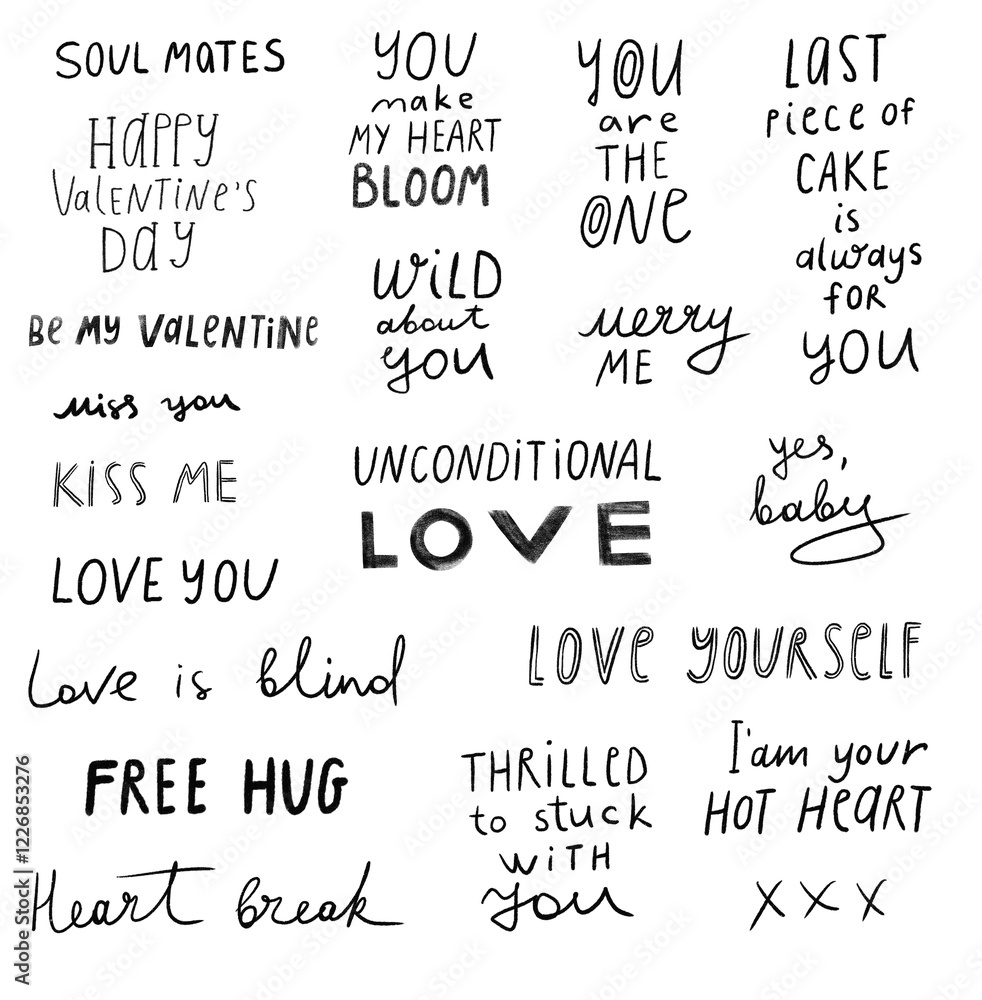 SOUL MATES
HAPPY
VALENTINE'S
DAY
Be MY VALENTINE
miss you
KISS ME
LOVE YOU
Love is blind
FREE HUG
Heart break
YOU
make
MY HEART
BLOOM
WiLD
about
you
UNCONDITIONAL
LOVE
YOU
are
THE
ONe
merry
ME
LAST
piece of
CAKE
is
always
FOR
YOU
yes,
baby
LOVe YOURSELF
THRiLLED
to stuck
WiTH
you
I'am your
HOT HeART
XXX
Adobe Stock | #1226853276
Adobe Stock